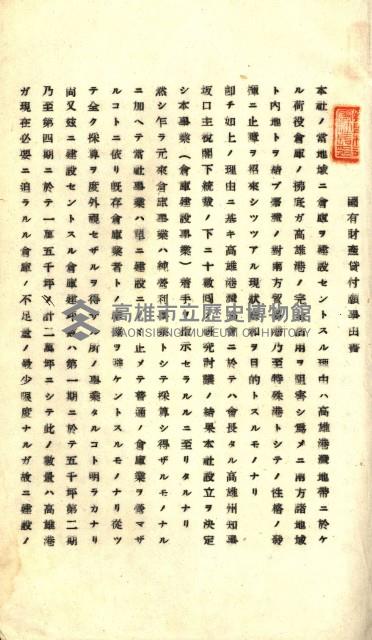 國有財產貸付願事由書
本社ノ當地域ニ倉庫ヲ建設セントスル理由ハ高雄港灣地帶ニ於ケ
ル荷役倉庫ノ拂底ガ高雄港ノ完全活用ヲ阻害シ爲メニ南方諸地域
ト內地トヲ結ブ臺灣ノ對南方貿易港乃至特殊港トシテノ性格ノ發
揮ニ止壅ヲ招來シツツアル現狀ノ緩和ヲ目的トスルモノナリ
卽チ如上ノ理由ニ基キ高雄港灣會ニ於テハ會長タル高雄州知事
坂口主税閣下統裁ノ下ニ十數回ノ硏究討議ノ結果本社設立ヲ決定
シ本事業(倉庫建設事業)着手ヲ指示セラルルニ至リタルナリ
然シ乍ラ元來倉庫事業ハ純營利事業トシテ採算シ得ザルモノナル
ニ加ヘテ當社事業ハ單ニ建設ノミニ止メテ普通ノ倉庫業ヲ營マザ
ルコトニ依リ既存倉庫業者トノ摩擦ヲ避ケントスルモノナリ從ツ
テ全ク採算ヲ度外視セザルヲ得ザル所ノ事業タルコト明ラカナリ
尙又玆ニ建設セントスル倉庫建坪ハ第一期ニ於テ五千坪第二期
乃至第四期ニ於テ一萬五千坪合計二萬坪ニシテ此ノ數量ハ高雄港
ガ現在必要ニ迫ラルル倉庫ノ不足數ノ最少限度ナルガ故ニ建設ノ
高雄市立歷史博物館
KAOHSIUNG MUSEUM OF HISTORY